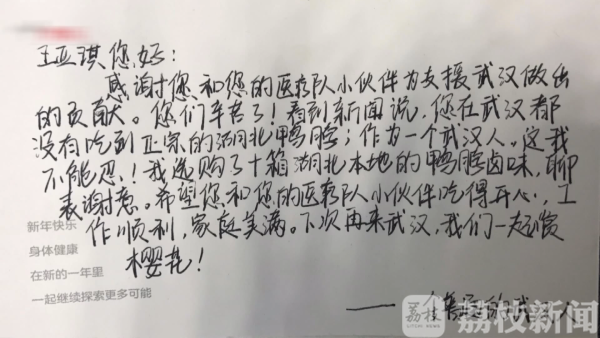 王亚琪您好：
感谢您和您的医疗队小伙伴为支援武汉做出
的贡献。您们辛苦了！看到新闻说，您在武汉都
没有吃到正宗的湖北鸭脖；作为一个武汉人。这我
不能忍！我选购了十箱湖北本地的鸭脖卤味，聊
表谢意。希望您和您的医疗队小伙伴吃得开心，工
作顺利，家庭美满。下次再来武汉，我们一起赏
樱花！
新年快乐
身体健康
在新的一年里
一起继续探索更多可能
——一个 的武 人
荔枝
荔枝新闻